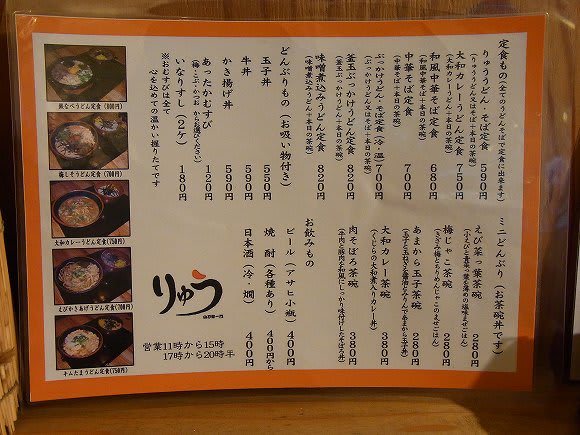 定食もの(全てのうどんそばで定食に出来ます)
りゅううどん・そば定食 590円
(りゅううどん又はそば十本日の茶碗)
大和カレーうどん定食 750円
(大和カレーうどん十本日の茶碗)
和風中華そば定食 680円
(和風中華そば十本日の茶碗)
中華そば定食 700円
(中華そば十本日の茶碗)
ぶっかけうどん・そば定食(冷・温) 700円
(ぶっかけうどん又はそば十本日の茶碗)
釜玉ぶっかけうどん定食 820円
(釜玉ぶっかけうどん十本日の茶碗)
味噌煮込みうどん定食 820円
(味噌煮込みうどん十本日の茶碗)
どんぶりもの(お吸い物付き)
玉子丼 550円
牛丼 590円
かき揚げ丼 590円
あったかむすび 120円
(梅・こぶ・かつお からお選びください)
いなりずし(2ケ) 180円
※おむすびは全て
心を込めての温かい握りたてです
ミニどんぶり(お茶碗丼です)
えび菜っ葉茶碗 280円
(小えびと青菜っ葉を薄めの塩味まぜごはん)
梅じゃこ茶碗 280円
(きざみ梅とちりめんじゃこのまぜごはん)
あまから玉子茶碗 280円
大和カレー茶碗 380円
(くじらの大和煮入りカレー丼)
肉そぼろ茶碗 380円
(牛肉と豚肉を和風にしっかり味付けしたそぼろ丼)
お飲みもの
ビール(アサヒ小瓶) 400円
焼酎(各種あり) 400円から
日本酒(冷・燗) 400円
りゅう
営業11時から15時
17時から20時半
梅しそうどん定食(700円)
大和カレーうどん定食(750円)
えびかきあげうどん定食(700円)
キムたまうどん定食(750円)